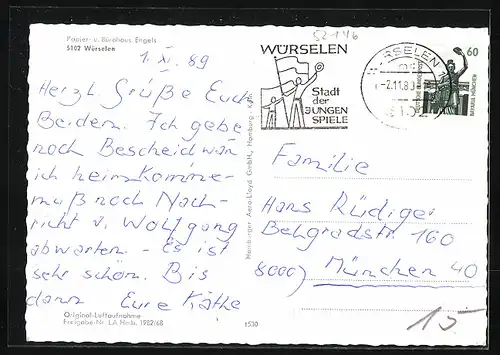 52146
Papier- u. Bürohaus Engels
5102 Würselen
1. XI. 89
Herzl. Grüße Euch
Beiden. Ich gebe
noch Bescheid wan
ich heim komme.
muß noch Nach-
richt v. Wolfgang
abwarten. - Es ist
sehr schön. Bis
dann Eure Käthe
Original-Luftaufnahme
1530
Hamburger Aero-Lloyd GmbH., Hamburg
WÜRSELEN
Stadt
der
JUNGEN
SPIELE
WÜRSELEN 1
-2.11.89
5102
60
DEUTSCHE BUNDESPOST
BAVARIA MÜNCHEN
Familie
Hans Rüdiger
Belgradstr 160
8000) München 40
15